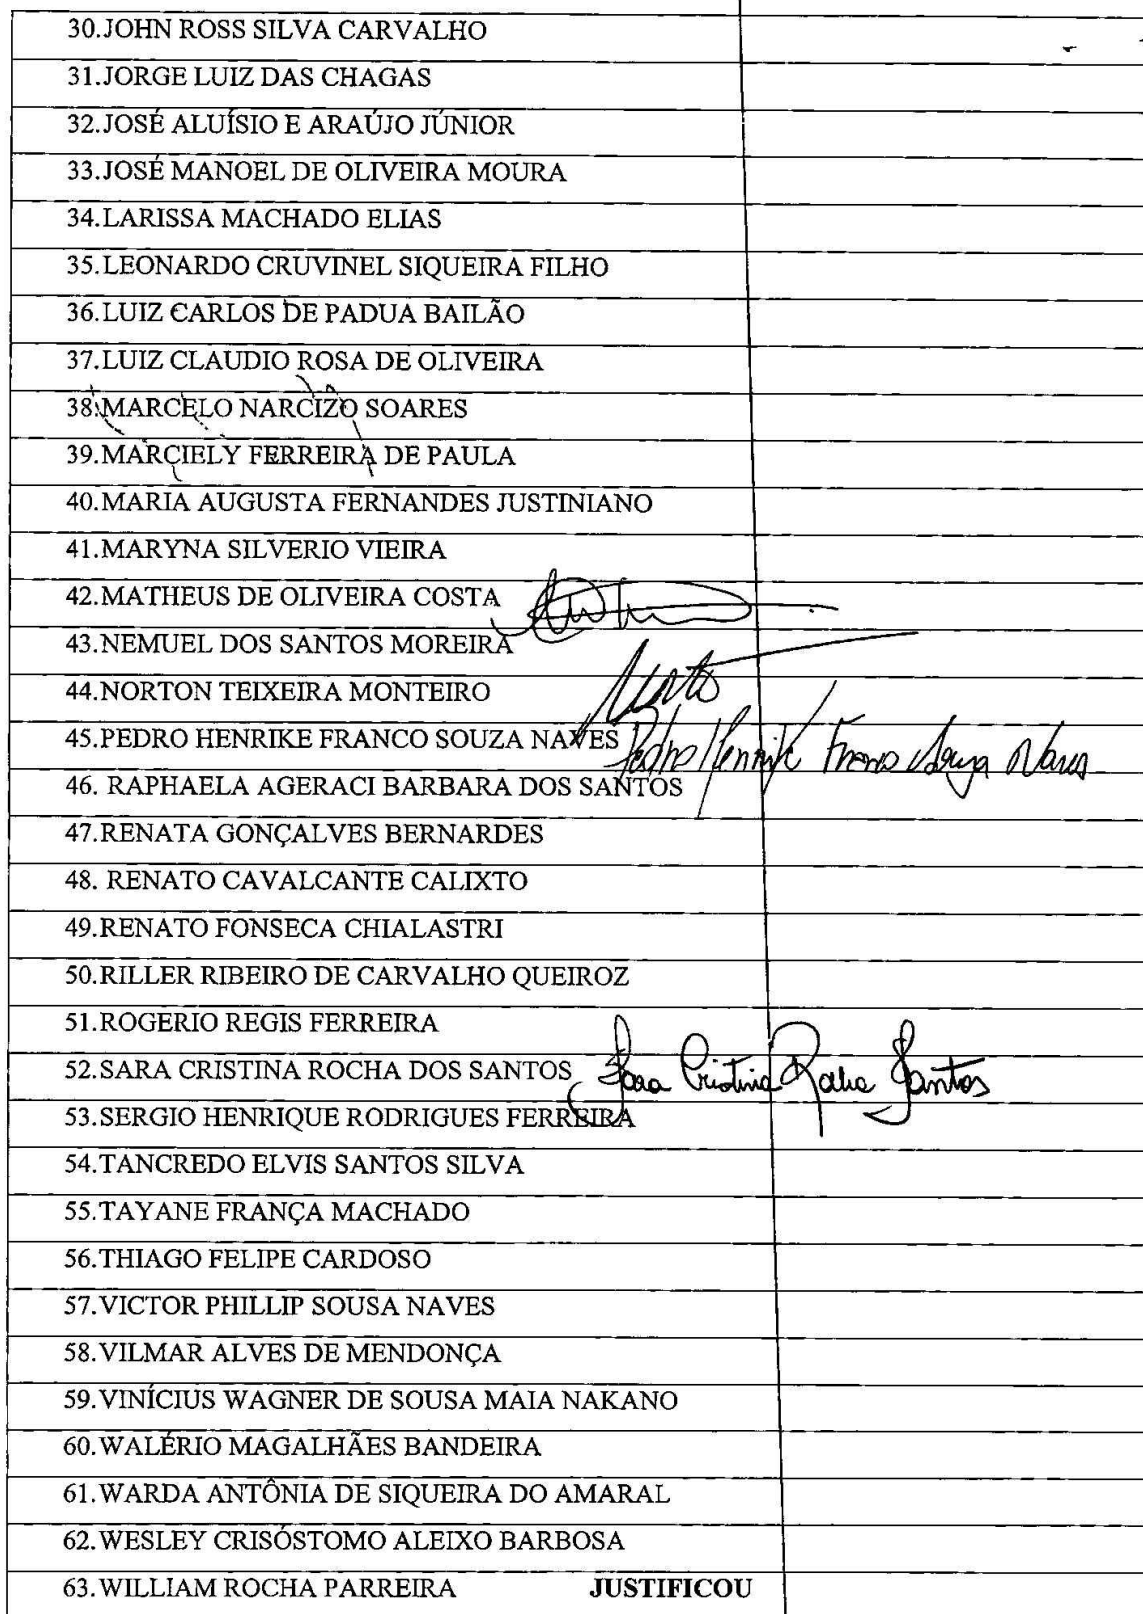 30.JOHN ROSS SILVA CARVALHO
31.JORGE LUIZ DAS CHAGAS
32.JOSÉ ALUÍSIO E ARAÚJO JÚNIOR
33.JOSÉ MANOEL DE OLIVEIRA MOURA
34.LARISSA MACHADO ELIAS
35.LEONARDO CRUVINEL SIQUEIRA FILHO
36.LUIZ CARLOS DE PADUA BAILÃO
37.LUIZ CLAUDIO ROSA DE OLIVEIRA
38.MARCELO NARCIZO SOARES
39.MARCIELY FERREIRA DE PAULA
40.MARIA AUGUSTA FERNANDES JUSTINIANO
41.MARYNA SILVERIO VIEIRA
42.MATHEUS DE OLIVEIRA COSTA
43.NEMUEL DOS SANTOS MOREIRA
44.NORTON TEIXEIRA MONTEIRO
45.PEDRO HENRIKE FRANCO SOUZA NAVES Pedro Henrike Franco Souza Naves
46. RAPHAELA AGERACI BARBARA DOS SANTOS
47.RENATA GONÇALVES BERNARDES
48. RENATO CAVALCANTE CALIXTO
49.RENATO FONSECA CHIALASTRI
50.RILLER RIBEIRO DE CARVALHO QUEIROZ
51.ROGERIO REGIS FERREIRA
52.SARA CRISTINA ROCHA DOS SANTOS Sara Cristina Rocha Santos
53.SERGIO HENRIQUE RODRIGUES FERREIRA
54.TANCREDO ELVIS SANTOS SILVA
55.TAYANE FRANÇA MACHADO
56.THIAGO FELIPE CARDOSO
57.VICTOR PHILLIP SOUSA NAVES
58.VILMAR ALVES DE MENDONÇA
59.VINÍCIUS WAGNER DE SOUSA MAIA NAKANO
60.WALÉRIO MAGALHÃES BANDEIRA
61.WARDA ANTÔNIA DE SIQUEIRA DO AMARAL
62.WESLEY CRISÓSTOMO ALEIXO BARBOSA
63.WILLIAM ROCHA PARREIRA JUSTIFICOU